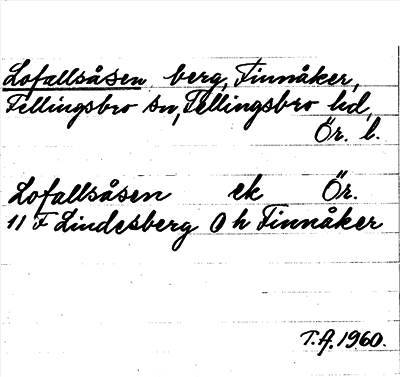 Lofallsåsen berg, Finnåker,
Fellingsbro sn, Fellingsbro hd,
Ör. l.
Lofallsåsen ek Ör.
11 F Lindesberg O h Finnåker
T.A. 1960.